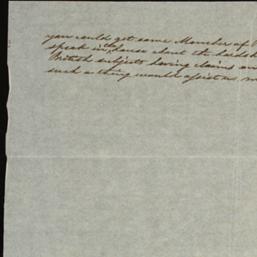 you could get some Member of P
speak in the house about the hards
British subjects having claims on
such a thing would assist us m